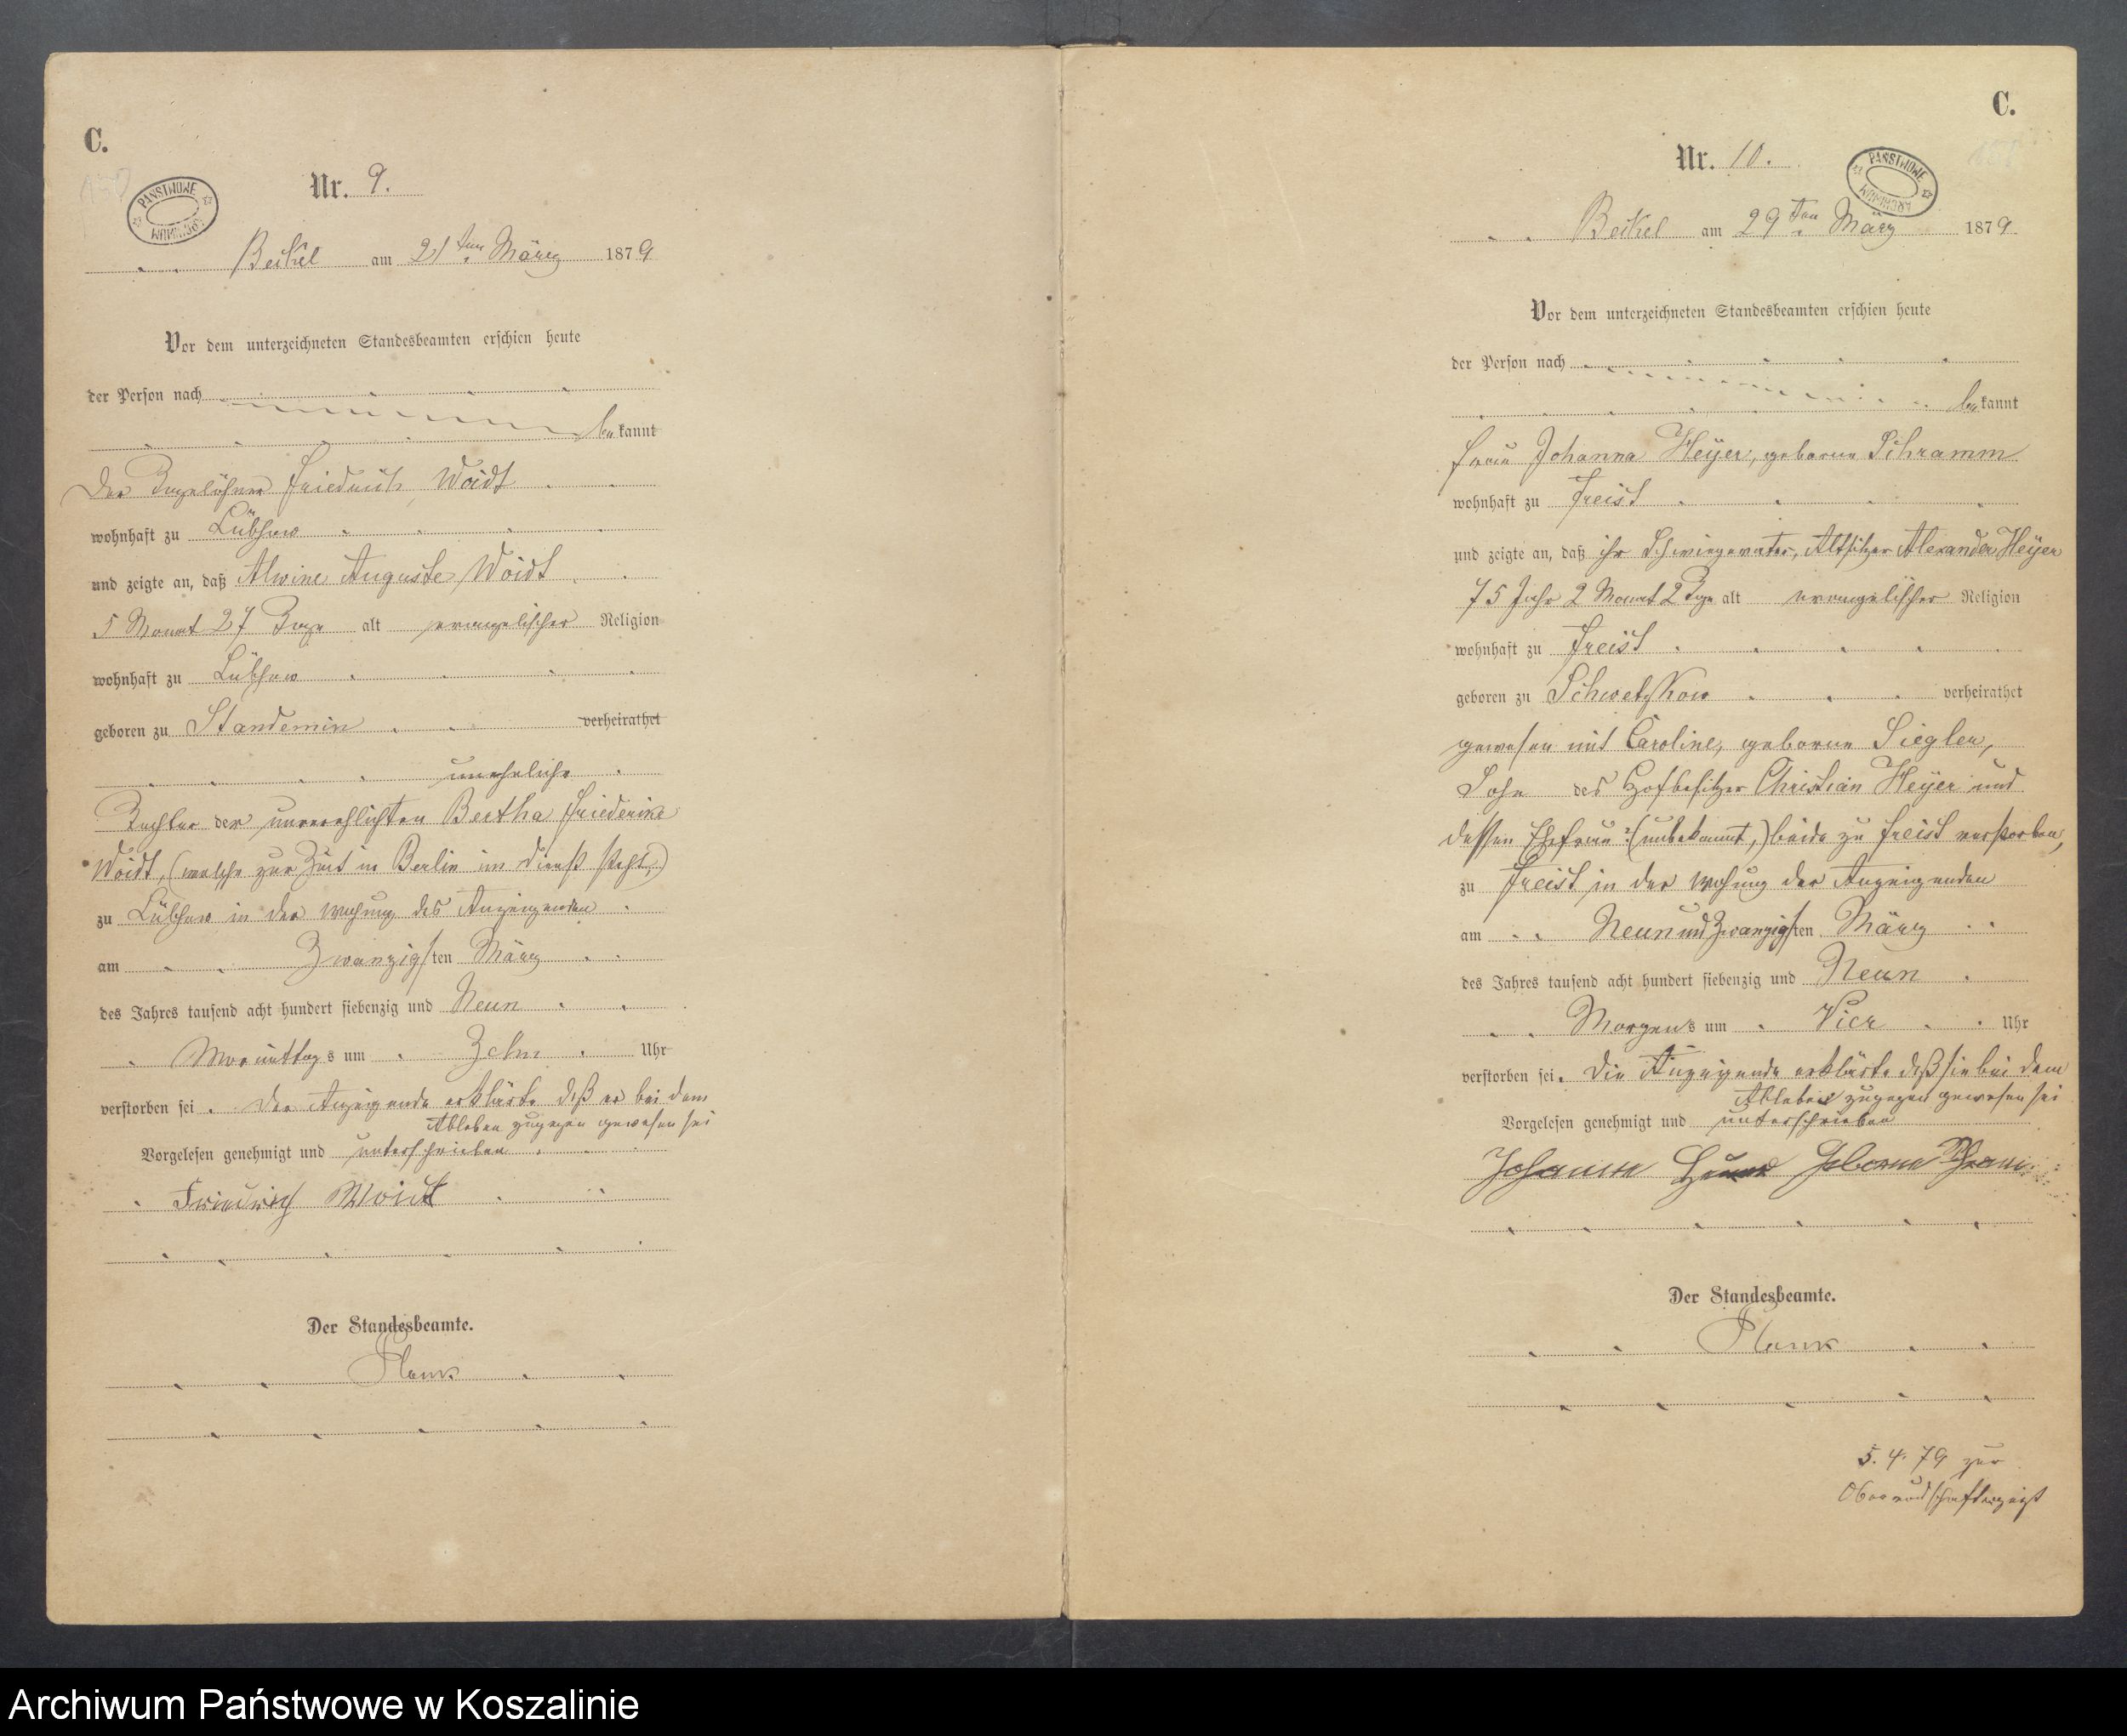 C.
Nr. 9.
PAŃSTWOWE
ARCHIWUM
Beckel am 21ten März 1879
Vor dem unterzeichneten Standesbeamten erschien heute
der Person nach
bekannt
Der Tagelöhner Friedrich Woidt
wohnhaft zu Lübzow
und zeigte an, daß Alwine Auguste Woidt
5 Monat 27 Tage alt evangelischer Religion
wohnhaft zu Lübzow
geboren zu Standemin verheirathet
uneheliche
Tochter der unverehlichten Bertha Friederike
Woidt, (welche zur Zeit in Berlin im Dienst steht,)
zu Lübzow in der Wohnung des Anzeigenden
am Zwanzigsten März
des Jahres tausend acht hundert siebenzig und Neun
Vormittags um Zehn Uhr
verstorben sei. Der Anzeigende erklärte daß er bei dem
Ableben zugegen gewesen sei
Vorgelesen genehmigt und unterschrieben
Friedrich Woidt
Der Standesbeamte.
Plank
C.
Nr. 10.
PAŃSTWOWE
ARCHIWUM
Beckel am 29ten März 1879
Vor dem unterzeichneten Standesbeamten erschien heute
der Person nach
bekannt
Frau Johanna Heÿer, geborne Schramm
wohnhaft zu Freist
und zeigte an, daß ihr Schwiegervater, Altsitzer Alexander Heÿer
75 Jahr 2 Monat 2 Tage alt evangelischer Religion
wohnhaft zu Freist
geboren zu Schwetzkow verheirathet
gewesen mit Caroline, geborne Siegler,
Sohn des Hofbesitzer Christian Heÿer und
dessen Ehefrau ?(unbekannt,) beide zu Freist verstorben,
zu Freist in der Wohnung der Anzeigenden
am Neun und Zwanzigsten März
des Jahres tausend acht hundert siebenzig und Neun
Morgens um Vier Uhr
verstorben sei. Die Anzeigende erklärte daß sie bei dem
Ableben zugegen gewesen sei
Vorgelesen genehmigt und unterschrieben
Johanne geborne
Der Standesbeamte.
Plank
5. 4. 79 zur
Archiwum Państwowe w Koszalinie